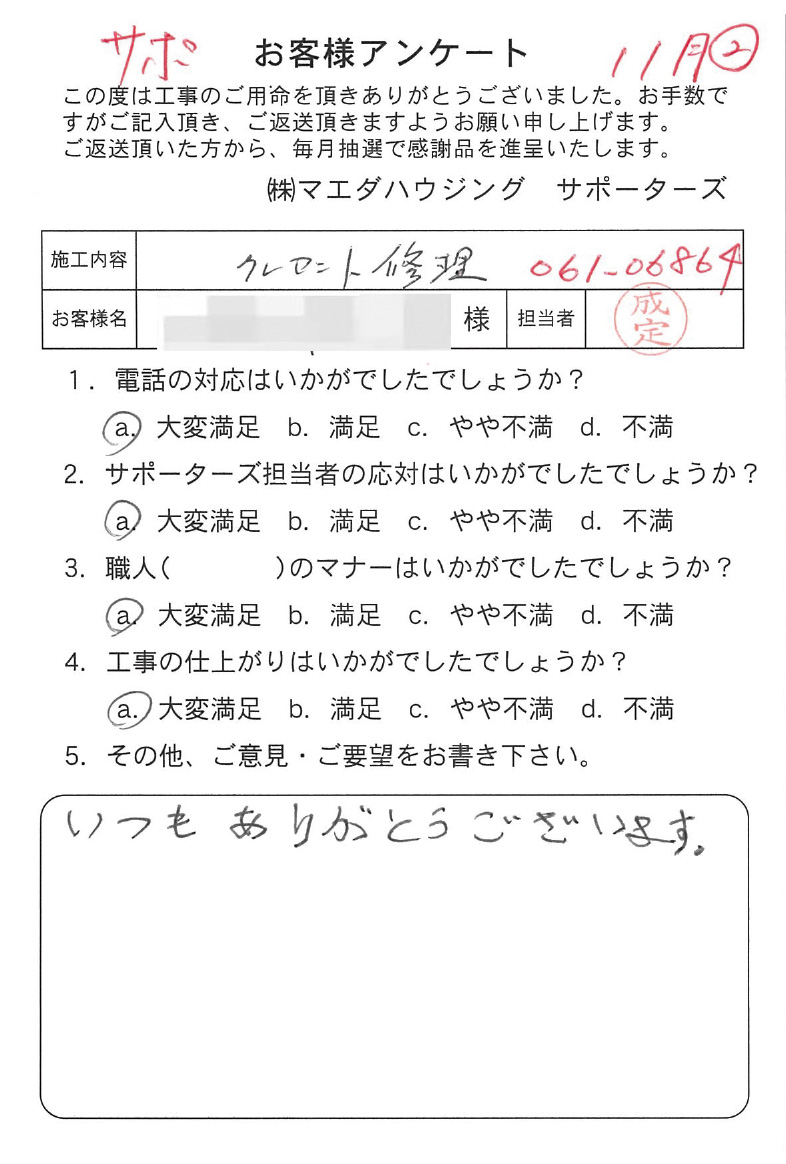 サポ お客様アンケート 11月②
この度は工事のご用命を頂きありがとうございました。お手数で
すがご記入頂き、ご返送頂きますようお願い申し上げます。
ご返送頂いた方から、毎月抽選で感謝品を進呈いたします。
㈱マエダハウジング サポーターズ
施工内容 クレセント修理 061-06864
お客様名 様 担当者 成定
1. 電話の対応はいかがでしたでしょうか？
a. 大変満足 b. 満足 c. やや不満 d. 不満
2. サポーターズ担当者の応対はいかがでしたでしょうか？
a. 大変満足 b. 満足 c. やや不満 d. 不満
3. 職人( )のマナーはいかがでしたでしょうか？
a. 大変満足 b. 満足 c. やや不満 d. 不満
4. 工事の仕上がりはいかがでしたでしょうか？
a. 大変満足 b. 満足 c. やや不満 d. 不満
5. その他、ご意見・ご要望をお書き下さい。
いつも ありがとうございます。